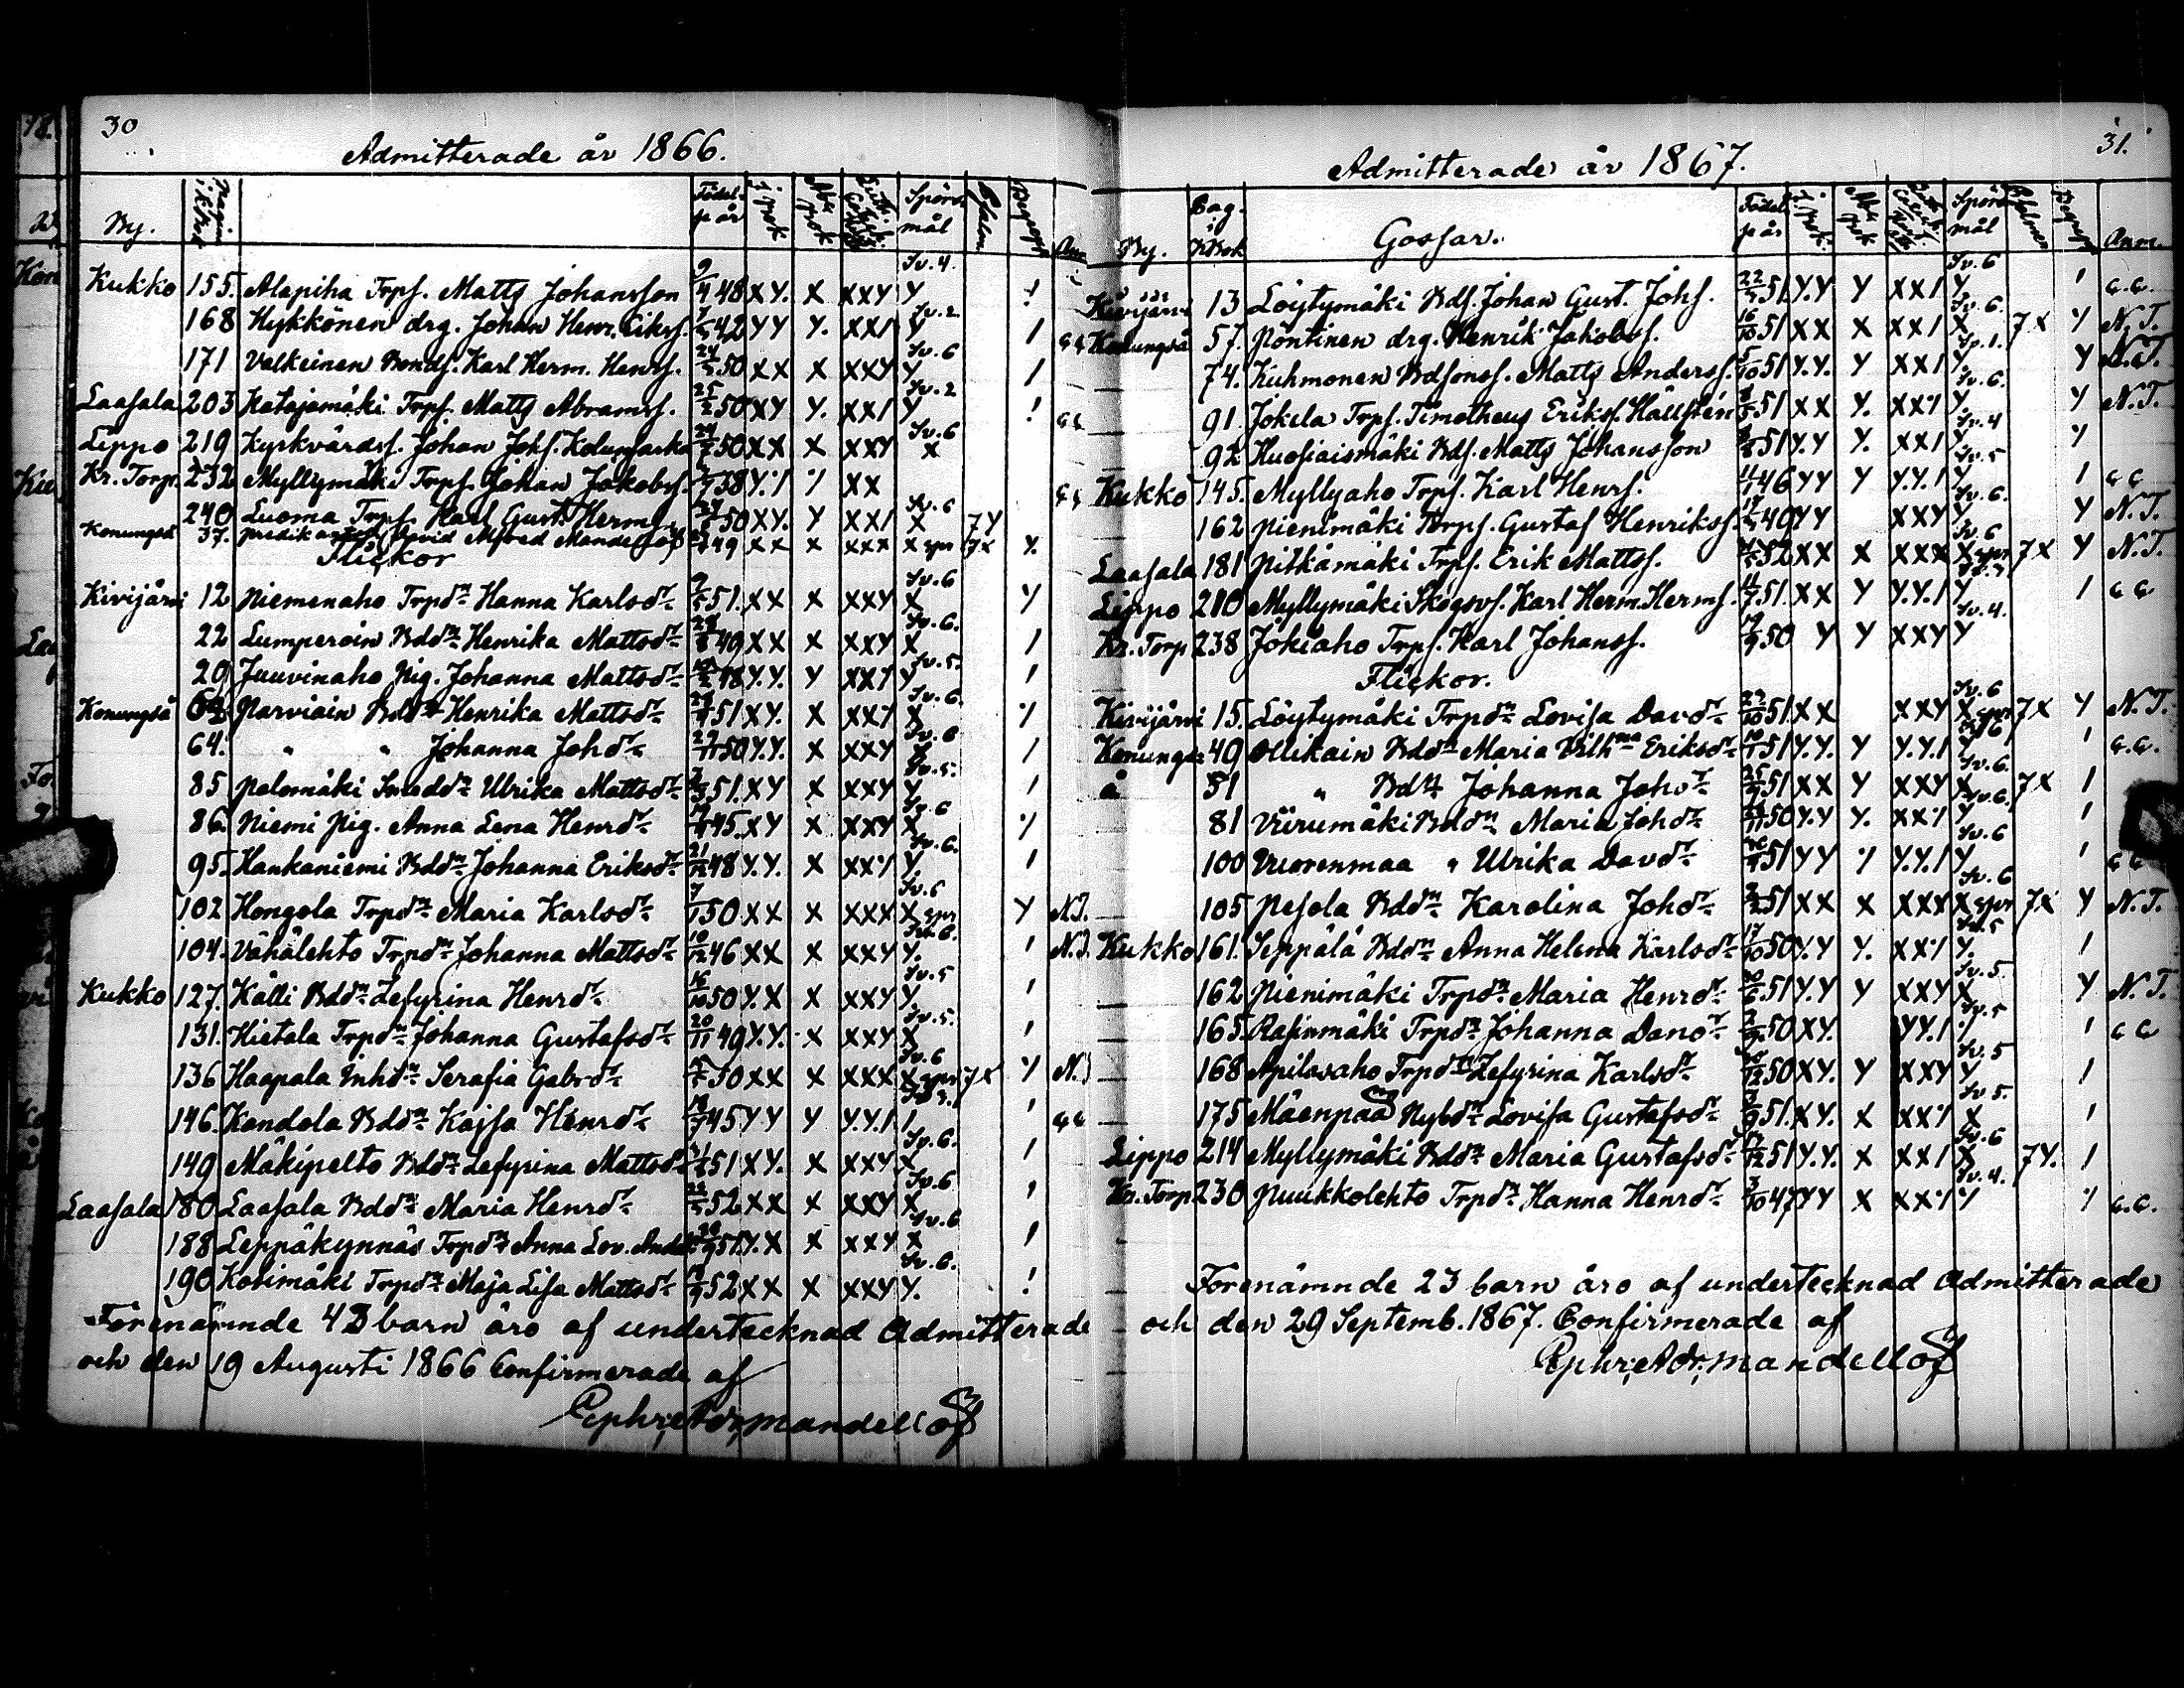 30
Admitterade år 1866.
By. Födel. på år Spörs mål Psalm. Anm.
Kukko 155. Alapiha Trps. Matts Johansson 48 X Y. X X X Y Sv. 4. Y
168 Hykkönen drg. Johan Henr. Erikss. 42 Y Y Y. X X / Sv. 2 Y /
171 Valkeinen Bonds. Karl Herm. Henrs. 50 X X X X X Y Sv. 6 Y /
Laasala 203 Katajamäki Trps. Matts Abramss. 25/2 50 X Y Y. X X / Sv. 2 Y
Lippo 219 Kyrkvärdss. Johan Johs. 50 X X X X X Y Sv. 6 X
Kr. Torp. 232 Myllymäki Trps. Johan Jakobss. 38 X X
240 Luoma Trps. Karl Gust. Herms. 50 X Y. Y X X / Sv. 6 X 7 Y
Konungså 37. David Alfred Mandellöf 49 X X X X X X X spr 7 X
Flickor
Kivijärvi 12 Niemenaho Trpdr Hanna Karlsdr 51. X X X X X Y Sv. 6 X Y
22 Lumperoin Bddr Henrika Mattsdr 49 X X X X X Y Sv. 6. X /
29 Juuvinaho Pig. Johanna Mattsdr 48 Y. Y. Y Sv. 5. Y /
Konungså Parviain Bddr Henrika Mattsdr 51 X Y. X Sv. 6. X
64. " " Johanna Johdr 50 Y. Y. X X X Y Sv. 6 /
85 Palomäki Smeddr Ulrika Mattsdr 51. X Y X X X Y Sv. 5. Y /
86. Niemi Pig. Anna Lena Henrdr 45. X Y X X X Y Sv. 6 X
95. Hankaniemi Bddr Johanna Eriksdr 21/12 48 Y. Y. X Sv. 6. Y. /
102 Hongola Trpdr Maria Karlsdr 50 X X X X X X Sv. 6 X spr Y N.T.
104. Vähälehto Trpdr Johanna Mattsdr 10/12 46 X X X X X Y Sv. 6. Y. / N.T.
Kukko 127. Källi Bddr Zefyrina Henrdr 16/10 50 Y. X X X X Y Sv. 5 Y. /
131. Hietala Trpdr Johanna Gustafsdr 20/11 49 Y. Y. X X X Y Sv. 5. X /
136 Haapala Inhdr Serafia Gabrdr 50 X X X X X X Sv. 6 X spr 7 X Y
146. Kandola Bddr Kajsa Henrdr 45 Y Y Y Y. Y. / /
149 Mäkipelto Bddr Zefyrina Mattsdr 51 X Y. X X X Y Sv. 6. X /
Laasala 180 Laasala Bddr Maria Henrdr 52 X X X X X Y Sv. 6 X /
188 Leppäkynnäs Trpdr Anna Lov. 51. Y. X X X X Y Sv. 6 X /
190 Kotimäki Trpdr Maja Lisa Mattsdr 52 X X X X X Y Sv. 6. Y.
Förenämnde barn äro af undertecknad Admitterade
och den 19 Augusti 1866 Confirmerade af
Ephr; Adr; Mandellöf
31.
Admitterade år 1867.
By. Pag. i KBok Gossar. Födel. på år Spörs mål Anm.
Kivijärvi 13 Löytymäki Bds. Johan Gust. Johs. 51. Y. Y Y X X / Sv. 6 Y / c.c.
Konungså 57. Pöntinen drg. Henrik Jakobss. 16/10 51 X X X X X / Sv. 6. X 7 X Y N.T.
74. Kuhmonen Bdsons. Matts Anderss. 5/10 51 Y. Y. Y X X / Sv. 1. Y Y
91 Jokela Trps. Timotheus Erikss. Hällstén 51 X X Y. Sv. 6. Y Y N.T.
92 Huosiaismäki Bds. Matts Johansson 51 Y. Y Y. X X / Sv. 4 Y. Y
Kukko 145. Myllyaho Trps. Karl Henrs. 46 Y Y Y Y. Y. / Sv. 5 Y / c c
162 Pienimäki Trps. Gustaf Henrikss. 49 Y Y X X Y Sv. 6. Y Y N.T.
Laasala 181 Pitkämäki Trps. Erik Mattss. 52 X X X X X X Sv. 6 X spr 7 X Y N.T.
Lippo 210 Myllymäki Skogsvs. Karl Herm. Herms. 51. X X Y Y. Y. / Y / c c
Kr. Torp 238 Jokiaho Trps. Karl Johanss. 50 Y Y X X Y Sv. 4. Y
Flickor.
Kivijärvi 15. Löytymäki Trpdr Lovisa Davdr 22/10 51. X X X X Y Sv. 6 X spr 7 X Y N.T.
Konungs- 49 Ollikain Bddr Maria Vilhma Eriksdr 51 Y. Y. Y Y. Y. / Y / c.c.
å 51 " Bddr Johanna Johdr 51 X X Y X X Y Sv. 6. X 7 X /
81 Viirumäki Bddr Maria Johdr 50 Y. Y Y. Sv. 6. Y /
100 Vuorenmaa " Ulrika Davdr 51 Y Y Y. Y. / Sv. 6 Y /
105 Pesola Bddr Karolina Johdr 51 X X X X X X Sv. 6 X spr 7 X Y N.T.
Kukko 161. Seppälä Bddr Anna Helena Karlsdr 17/10 50 Y. Y Y. Sv. 5 Y. /
162 Pienimäki Trpdr Maria Henrdr 51 Y. Y Y X X Y Sv. 5. X Y N.T.
165. Rasinmäki Trpdr Johanna 50 X Y. Y Y. / Sv. 5 / c c
168 Apilasaho Trpdr Zefyrina Karlsdr 50 X Y. Y X X Y Sv. 5 Y /
175 Mäenpää Nybdr Lovisa Gustafsdr 51. X Y. X Sv. 5. X /
Lippo 214 Myllymäki Bddr Maria Gustafsdr 51 Y. Y. X X X / Sv. 6 X 7 Y. /
Kr. Torp 230 Puukkolehto Trpdr Hanna Henrdr 3/10 47 Y Y X Sv. 4. c.c.
Förenämnde 23 barn äro af undertecknad Admitterade
och den 29 Septemb. 1867. Confirmerade af
Ephr; Adr; Mandellöf